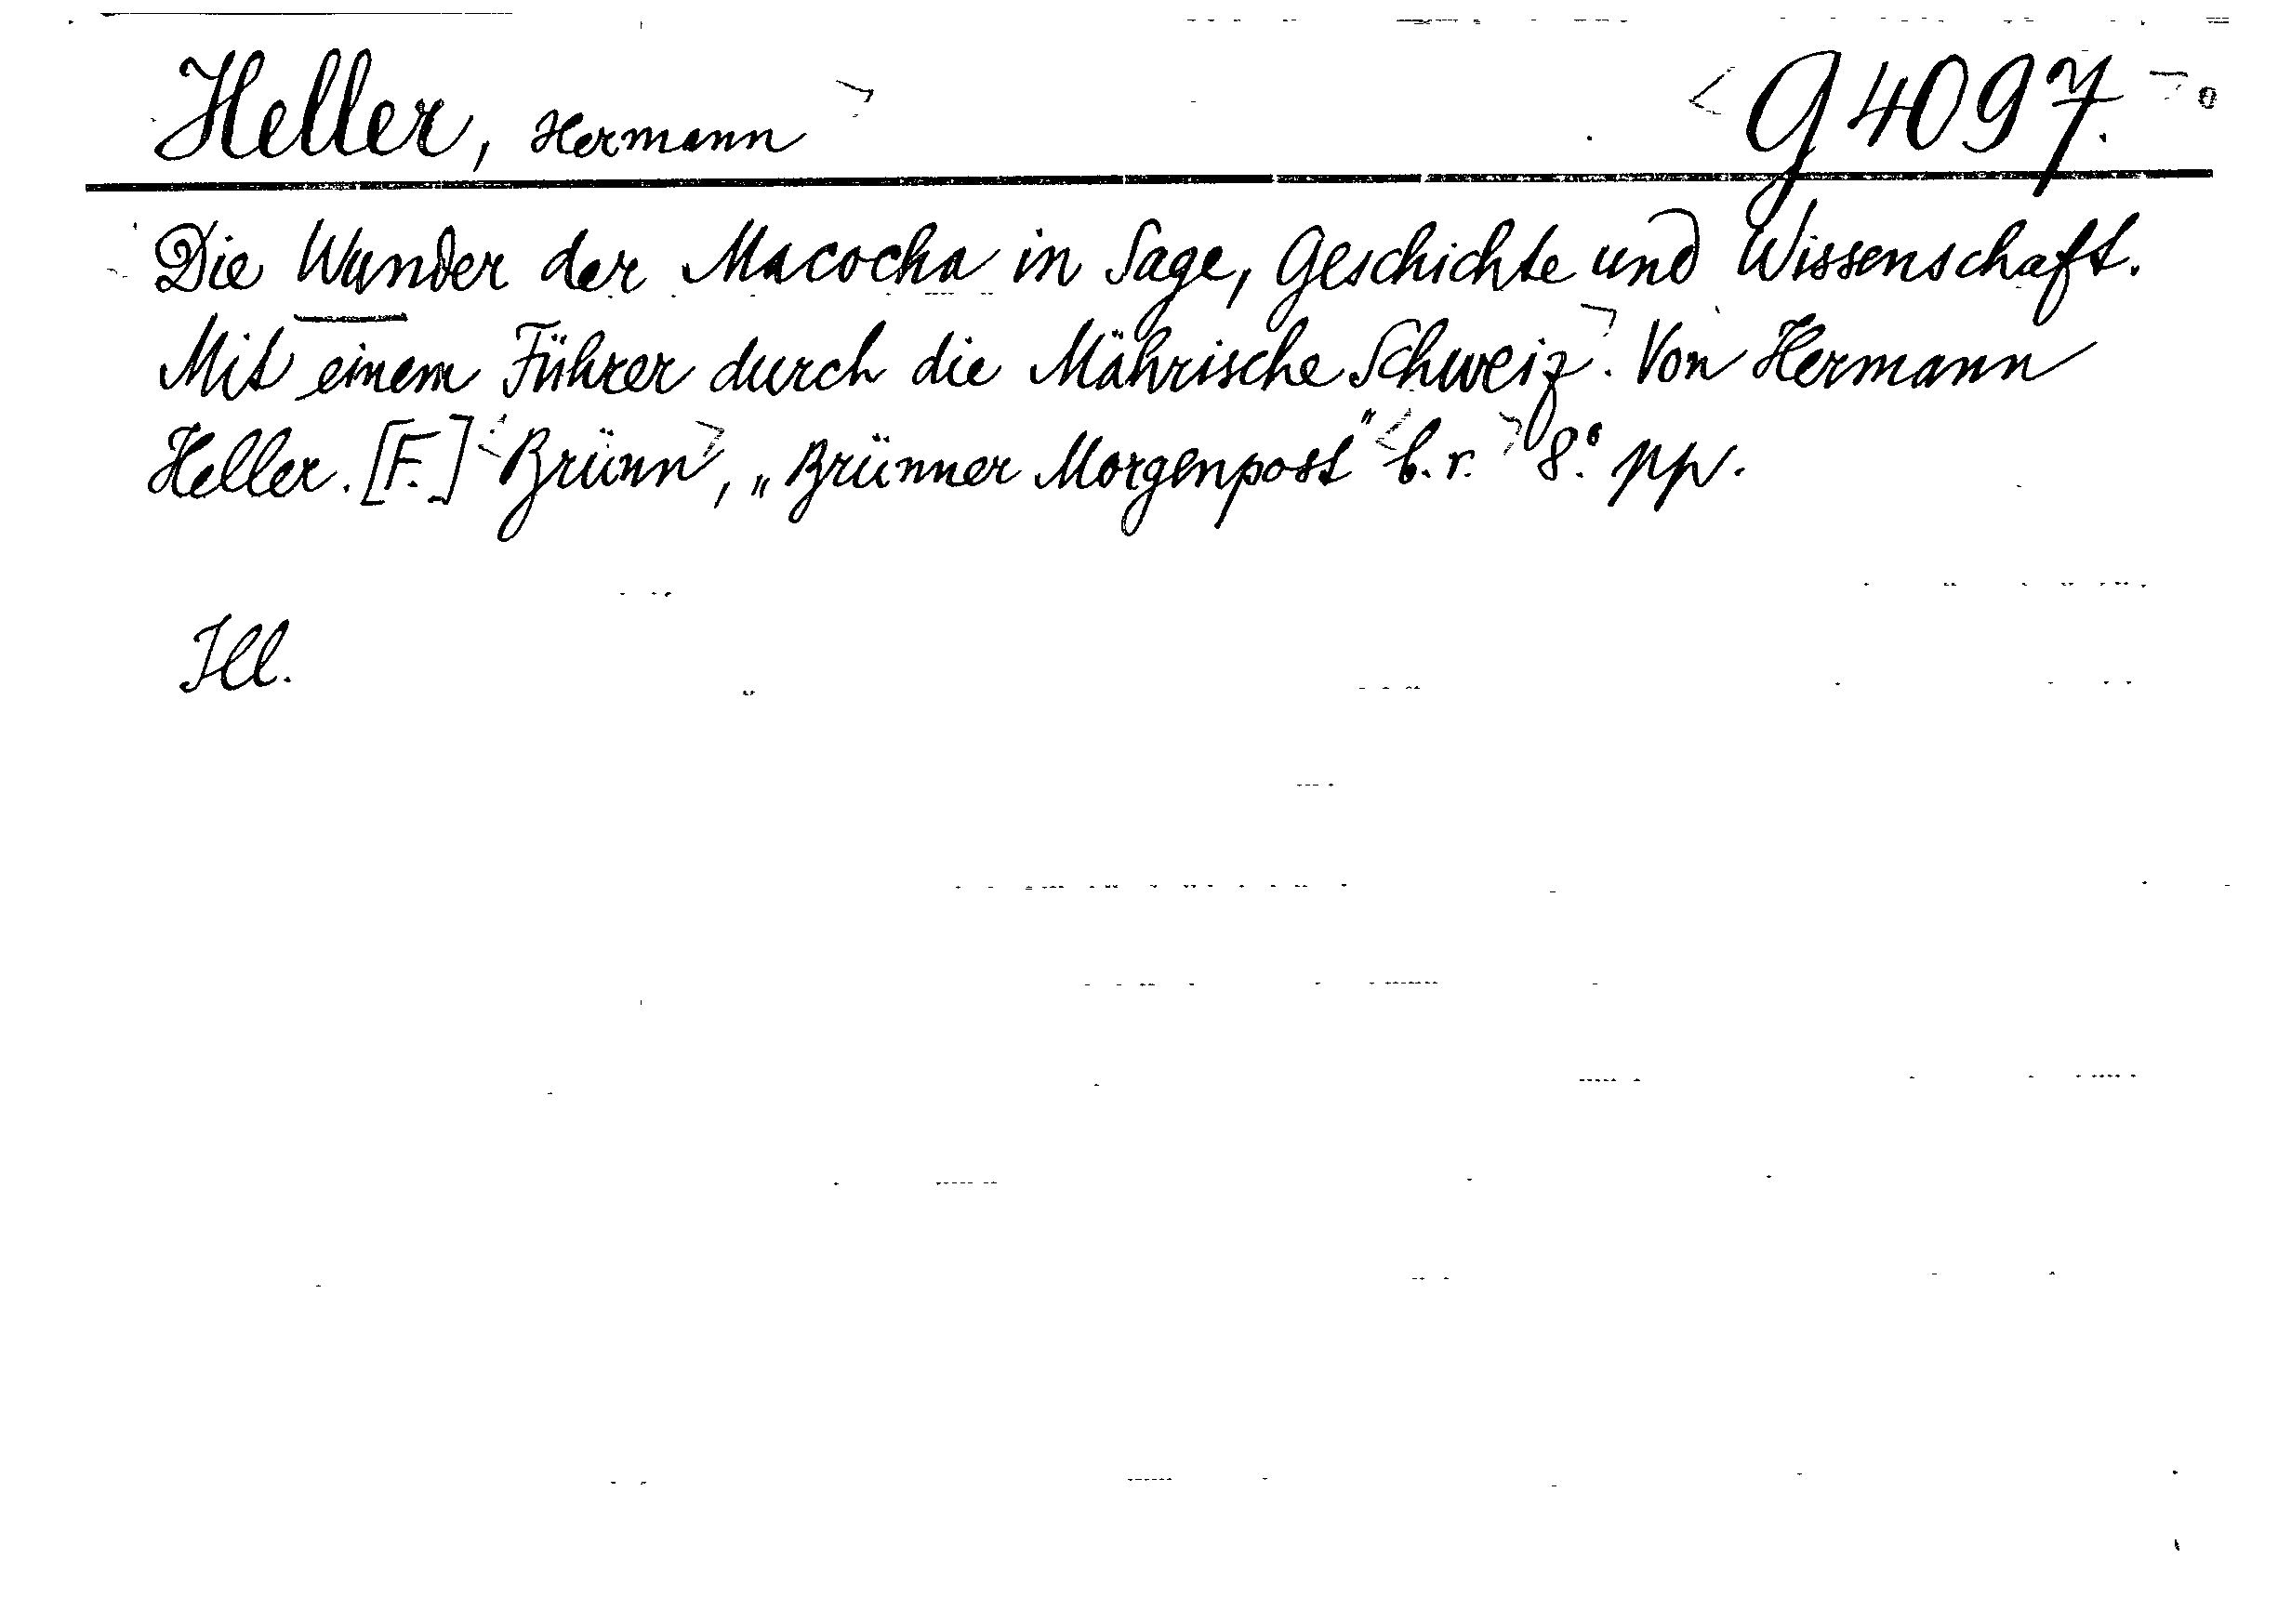 Heller, Hermann G 4097.
Die Wunder der Macocha in Sage, Geschichte und Wissenschaft.
Mit einem Führer durch die Mährische Schweiz. Von Hermann
Heller. [F.] Brünn, „Brünner Morgenpost" b. r. 8.° pp.
Ill.